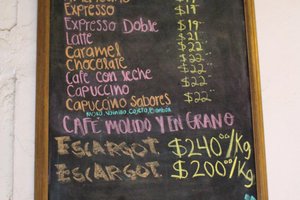 Expresso $17
Expresso Doble $19
Latte $21
Caramel $22
Chocolate $22
Cafe con leche $22
Capuccino $22
Capuccino Sabores $22
CAFE MOLIDO Y EN GRANO
ESCARGOT $240.00/Kg
ESCARGOT $200.00/Kg